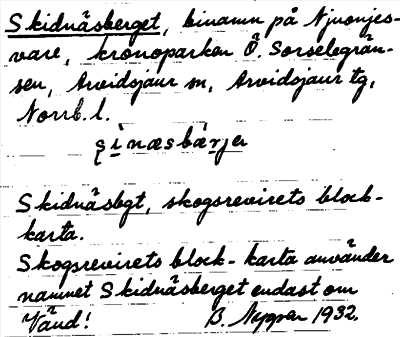 Skidnäsberget, binamn på Njuonjes-
vare, kronoparken Ö. Sorselegrän-
sen, Arvidsjaur sn, Arvidsjaur tg,
Norrb. l.
ʂinæsbärjer
Skidnäsbgt, skogsrevirets block-
karta.
Skogsrevirets block-karta använder
namnet Skidnäsberget endast om
Vänd! B. Nyman 1932.